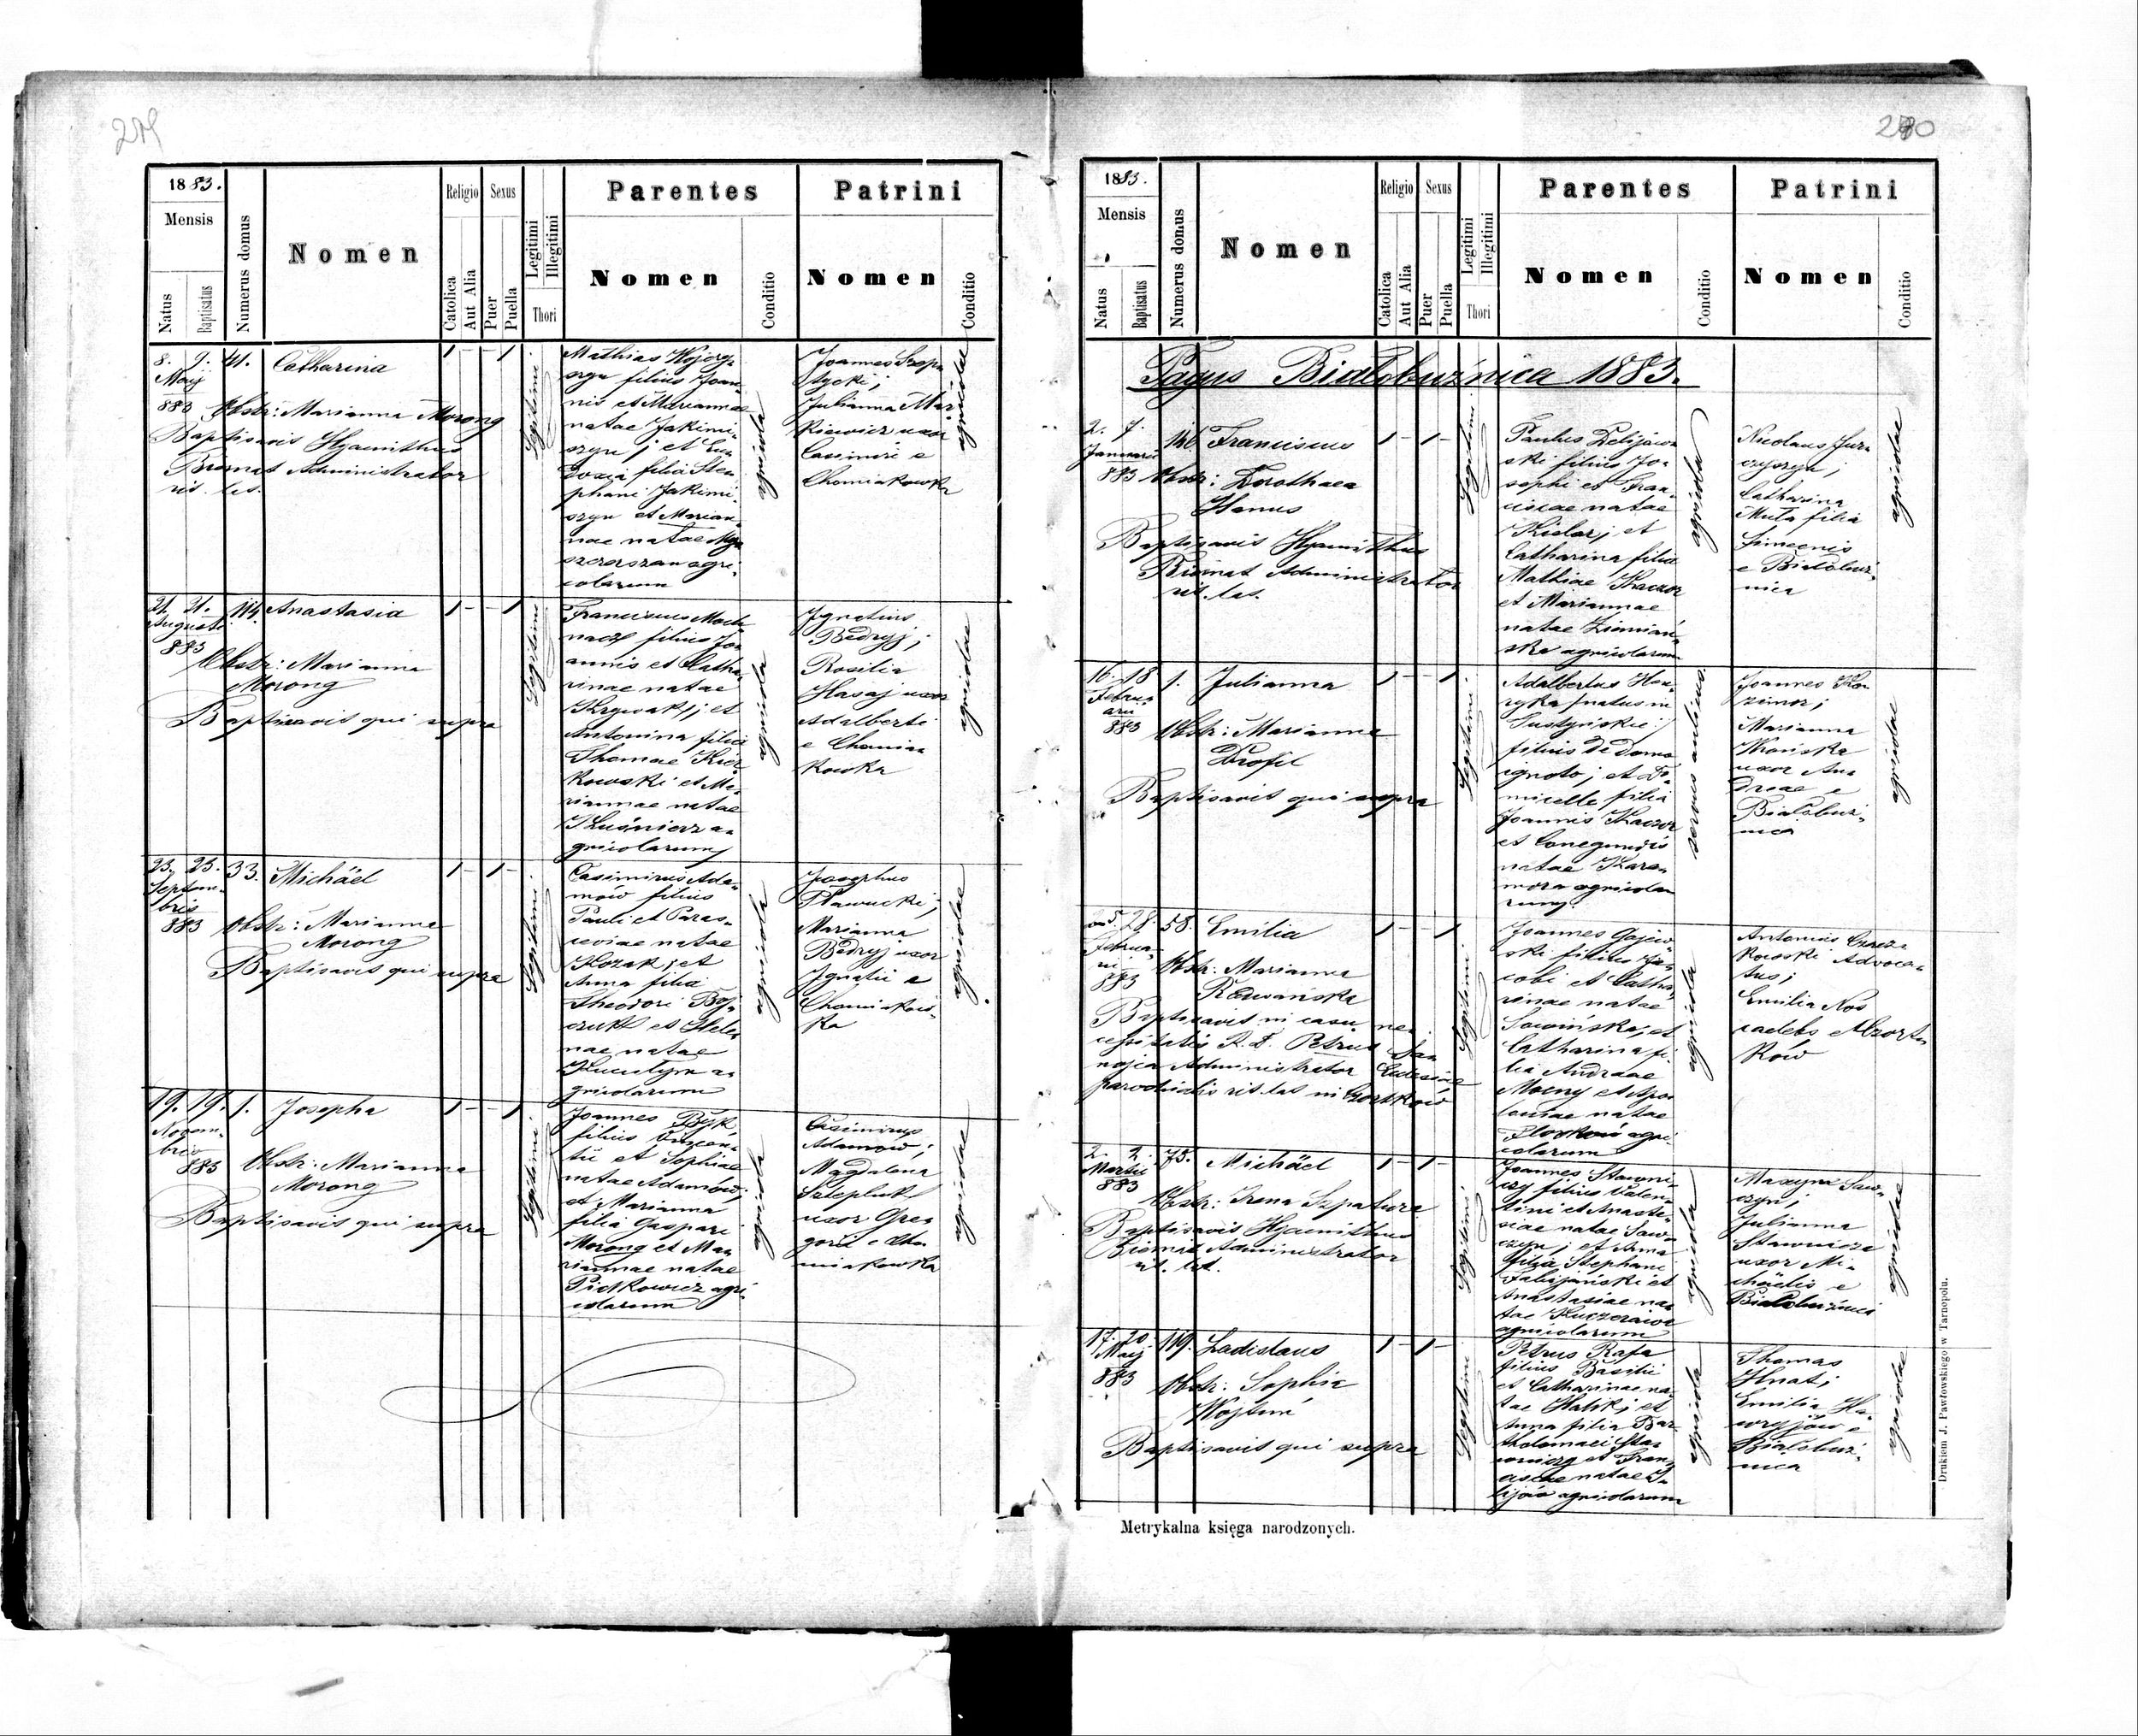 280
1883.
Mensis
Natus
Baptisatus
Numerus domus
Nomen
Religio
Catolica
Aut Alia
Sexus
Puer
Puella
Legitimi
Illegitimi
Thori
Parentes
Nomen
Conditio
Patrini
Nomen
Conditio
8. 9. 41. Catharina
Maij
883
Obstr: Marianna Morong
Baptisavit Hyacinthus
Administrator
rit. lat.
Legitimi
Mathias
filius Joan-
nis et Mariannae
natae Jakimi-
szyn; et Eu-
doxia filia Ste-
phani Jakimi-
szyn et Marian-
nae natae
agri-
colarum
agricola
Joannes
Julianna Mar-
kiewicz uxor
Casimiri e
Chomiakowka
agricolae
21. 21. 114. Anastasia
Augusti
883
Obstr: Marianna
Morong
Baptisavit qui supra
Legitimi
Franciscus Moch-
nacz filius Jo-
annis et Catha-
rinae natae
et
Antonina filia
Thomae
kowski et Ma-
riannae natae
Kuśnierz a-
gricolarum
agricola
Ignatius
Bedryj;
Rosalia
Hasaj uxor
Adalberti
e Chomia-
kowka
agricolae
23. 25. 33. Michäel
Septem-
bris
883
Obstr: Marianna
Morong
Baptisavit qui supra
Legitimi
Casimirus Ada-
mów filius
Pauli et Paras-
ceviae natae
Kozak; et
Anna filia
Theodori Boj-
czuk et Hele-
nae natae
a-
gricolarum
agricola
Josephus
Marianna
Bedryj uxor
Ignatii e
Chomiakow-
ka
agricolae
19. 19. 1. Josepha
Novem-
bris
883
Obstr: Marianna
Morong
Baptisavit qui supra
Legitimi
Joannes Byk
filius Vincen-
tii et Sophiae
natae Adamów;
et Marianna
filia Gaspari
Morong et Ma-
riannae natae
Piotkowicz agri-
colarum
agricola
Casimirus
Adamów;
Magdalena
Szlepluk
uxor Gre-
gorii e Cho-
miakowka
agricolae
1883.
Mensis
Natus
Baptisatus
Numerus domus
Nomen
Religio
Catolica
Aut Alia
Sexus
Puer
Puella
Legitimi
Illegitimi
Thori
Parentes
Nomen
Conditio
Patrini
Nomen
Conditio
Pagus Białobużnica 1883.
2. 7. Franciscus
Januarii
883 Obstr: Dorothaea
Hanus
Baptisavit Hyacinthus
Administrator
rit. lat.
Legitimi
Paulus Delijow-
ski filius Jo-
sephi et Fran-
ciscae natae
Kielar; et
Catharina filia
Mathiae Kaczor
et Mariannae
natae Ziemiań-
ska agricolarum
agricola
Nicolaus Jura-
szyszyn;
Catharina
Muła filia
Simeonis
e Białobuż-
nica
agricolae
16. 18. 1. Julianna
Februa-
arii
883
Obstr: Marianna
Drofil
Baptisavit qui supra
Legitimi
Adalbertus Hen-
ryka /natus in
filius de domo
ignoto; et Do-
micella filia
Joannis Kaczor
et Conegundis
natae Kara-
mora agricola-
rum
servus aulicus
Joannes
Marianna
uxor An-
dreae e
Białobuż-
nica
agricolae
28. 58. Emilia
Februa-
rii
883
Obstr: Marianna
Rdwańska
Baptisavit in casu ne-
cessitatis R. D. Petrus
Administrator Ecclesiae
parochialis rit. lat. in Czortków
Legitimi
Joannes Gajew-
ski filius Ja-
cobi et Catha-
rinae natae
Sowińska; et
Catharina fi-
lia Andreae
Mocny et Apo-
loniae natae
agri-
colarum
agricola
Antonius
kowski Advoca-
tus;
Emilia Nos
e Czort-
ków
2. 2. 75. Michäel
Martii
883
Obstr: Irena Szpatura
Baptisavit Hyacinthus
Administrator
rit. lat.
Legitimi
Joannes Stawni-
czy filius Valen-
tini et Anasta-
siae natae Saw-
czyn; et Anna
filia Stephani
et
Anastasiae na-
tae
agricolarum
agricola
Maxym Saw-
czyn;
Julianna
Stawnicza
uxor Mi-
chäelis e
Białobużnica
agricolae
17. 20. 119. Ladislaus
Maij
883
Obstr: Sophia
Wojtuń
Baptisavit qui supra
Legitimi
Petrus Rafa
filius Basilii
et Catharinae na-
tae Halik; et
Anna filia Bar-
tholomaei Sta-
wniczy et Fran-
ciscae natae
agricolarum
agricola
Thomas
Hnat;
Emilia Ha-
e
Białobuż-
nica
agricolae
Metrykalna księga narodzonych.
Drukiem J. Pawłowskiego w Tarnopolu.